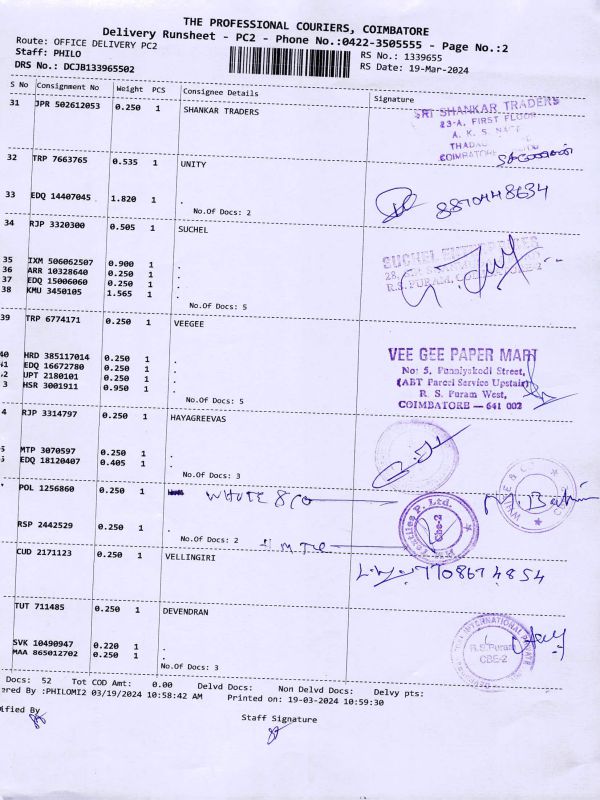 THE PROFESSIONAL COURIERS, COIMBATORE
Delivery Runsheet - PC2 - Phone No.:0422-3505555 - Page No.:2
Route: OFFICE DELIVERY PC2
RS No.: 1339655
Staff: PHILO
RS Date: 19-Mar-2024
DRS No.: DCJB133965502
S No Consignment No Weight PCS Consignee Details Signature
31 JPR 502612053 0.250 1 SHANKAR TRADERS
SRI SHANKAR TRADERS
23-A, FIRST FLOOR
A. K. S.
COIMBATORE
32 TRP 7663765 0.535 1 UNITY
33 EDQ 14407045 1.820 1 .
No.Of Docs: 2
8870448634
34 RJP 3320300 0.505 1 SUCHEL
SUCHEL
R.S. PURAM,
35 IXM 506062507 0.900 1 .
36 ARR 10328640 0.250 1 .
37 EDQ 15006060 0.250 1 .
38 KMU 3450105 1.565 1 .
No.Of Docs: 5
39 TRP 6774171 0.250 1 VEEGEE
VEE GEE PAPER MART
No: 5, Punniyakodi Street,
(ABT Parcel Service Upstair)
R. S. Puram West,
COIMBATORE — 641 002
40 HRD 385117014 0.250 1 .
41 EDQ 16672780 0.250 1 .
.2 UPT 2180101 0.250 1 .
3 HSR 3001911 0.950 1 .
No.Of Docs: 5
4 RJP 3314797 0.250 1 HAYAGREEVAS
5 MTP 3070597 0.250 1 .
EDQ 18120407 0.405 1 .
No.Of Docs: 3
POL 1256860 0.250 1
WHITE & CO
RSP 2442529 0.250 1 .
No.Of Docs: 2
P. Ltd.
Cbe-2
CUD 2171123 0.250 1 VELLINGIRI
7708674854
TUT 711485 0.250 1 DEVENDRAN
SVK 10490947 0.220 1 .
MAA 865012702 0.250 1 .
No.Of Docs: 3
INTERNATIONAL PRIVATE
R.S.Puram
CBE-2
Docs: 52 Tot COD Amt: 0.00 Delvd Docs: Non Delvd Docs: Delvy pts:
ered By :PHILOMI2 03/19/2024 10:58:42 AM Printed on: 19-03-2024 10:59:30
ified By
Staff Signature